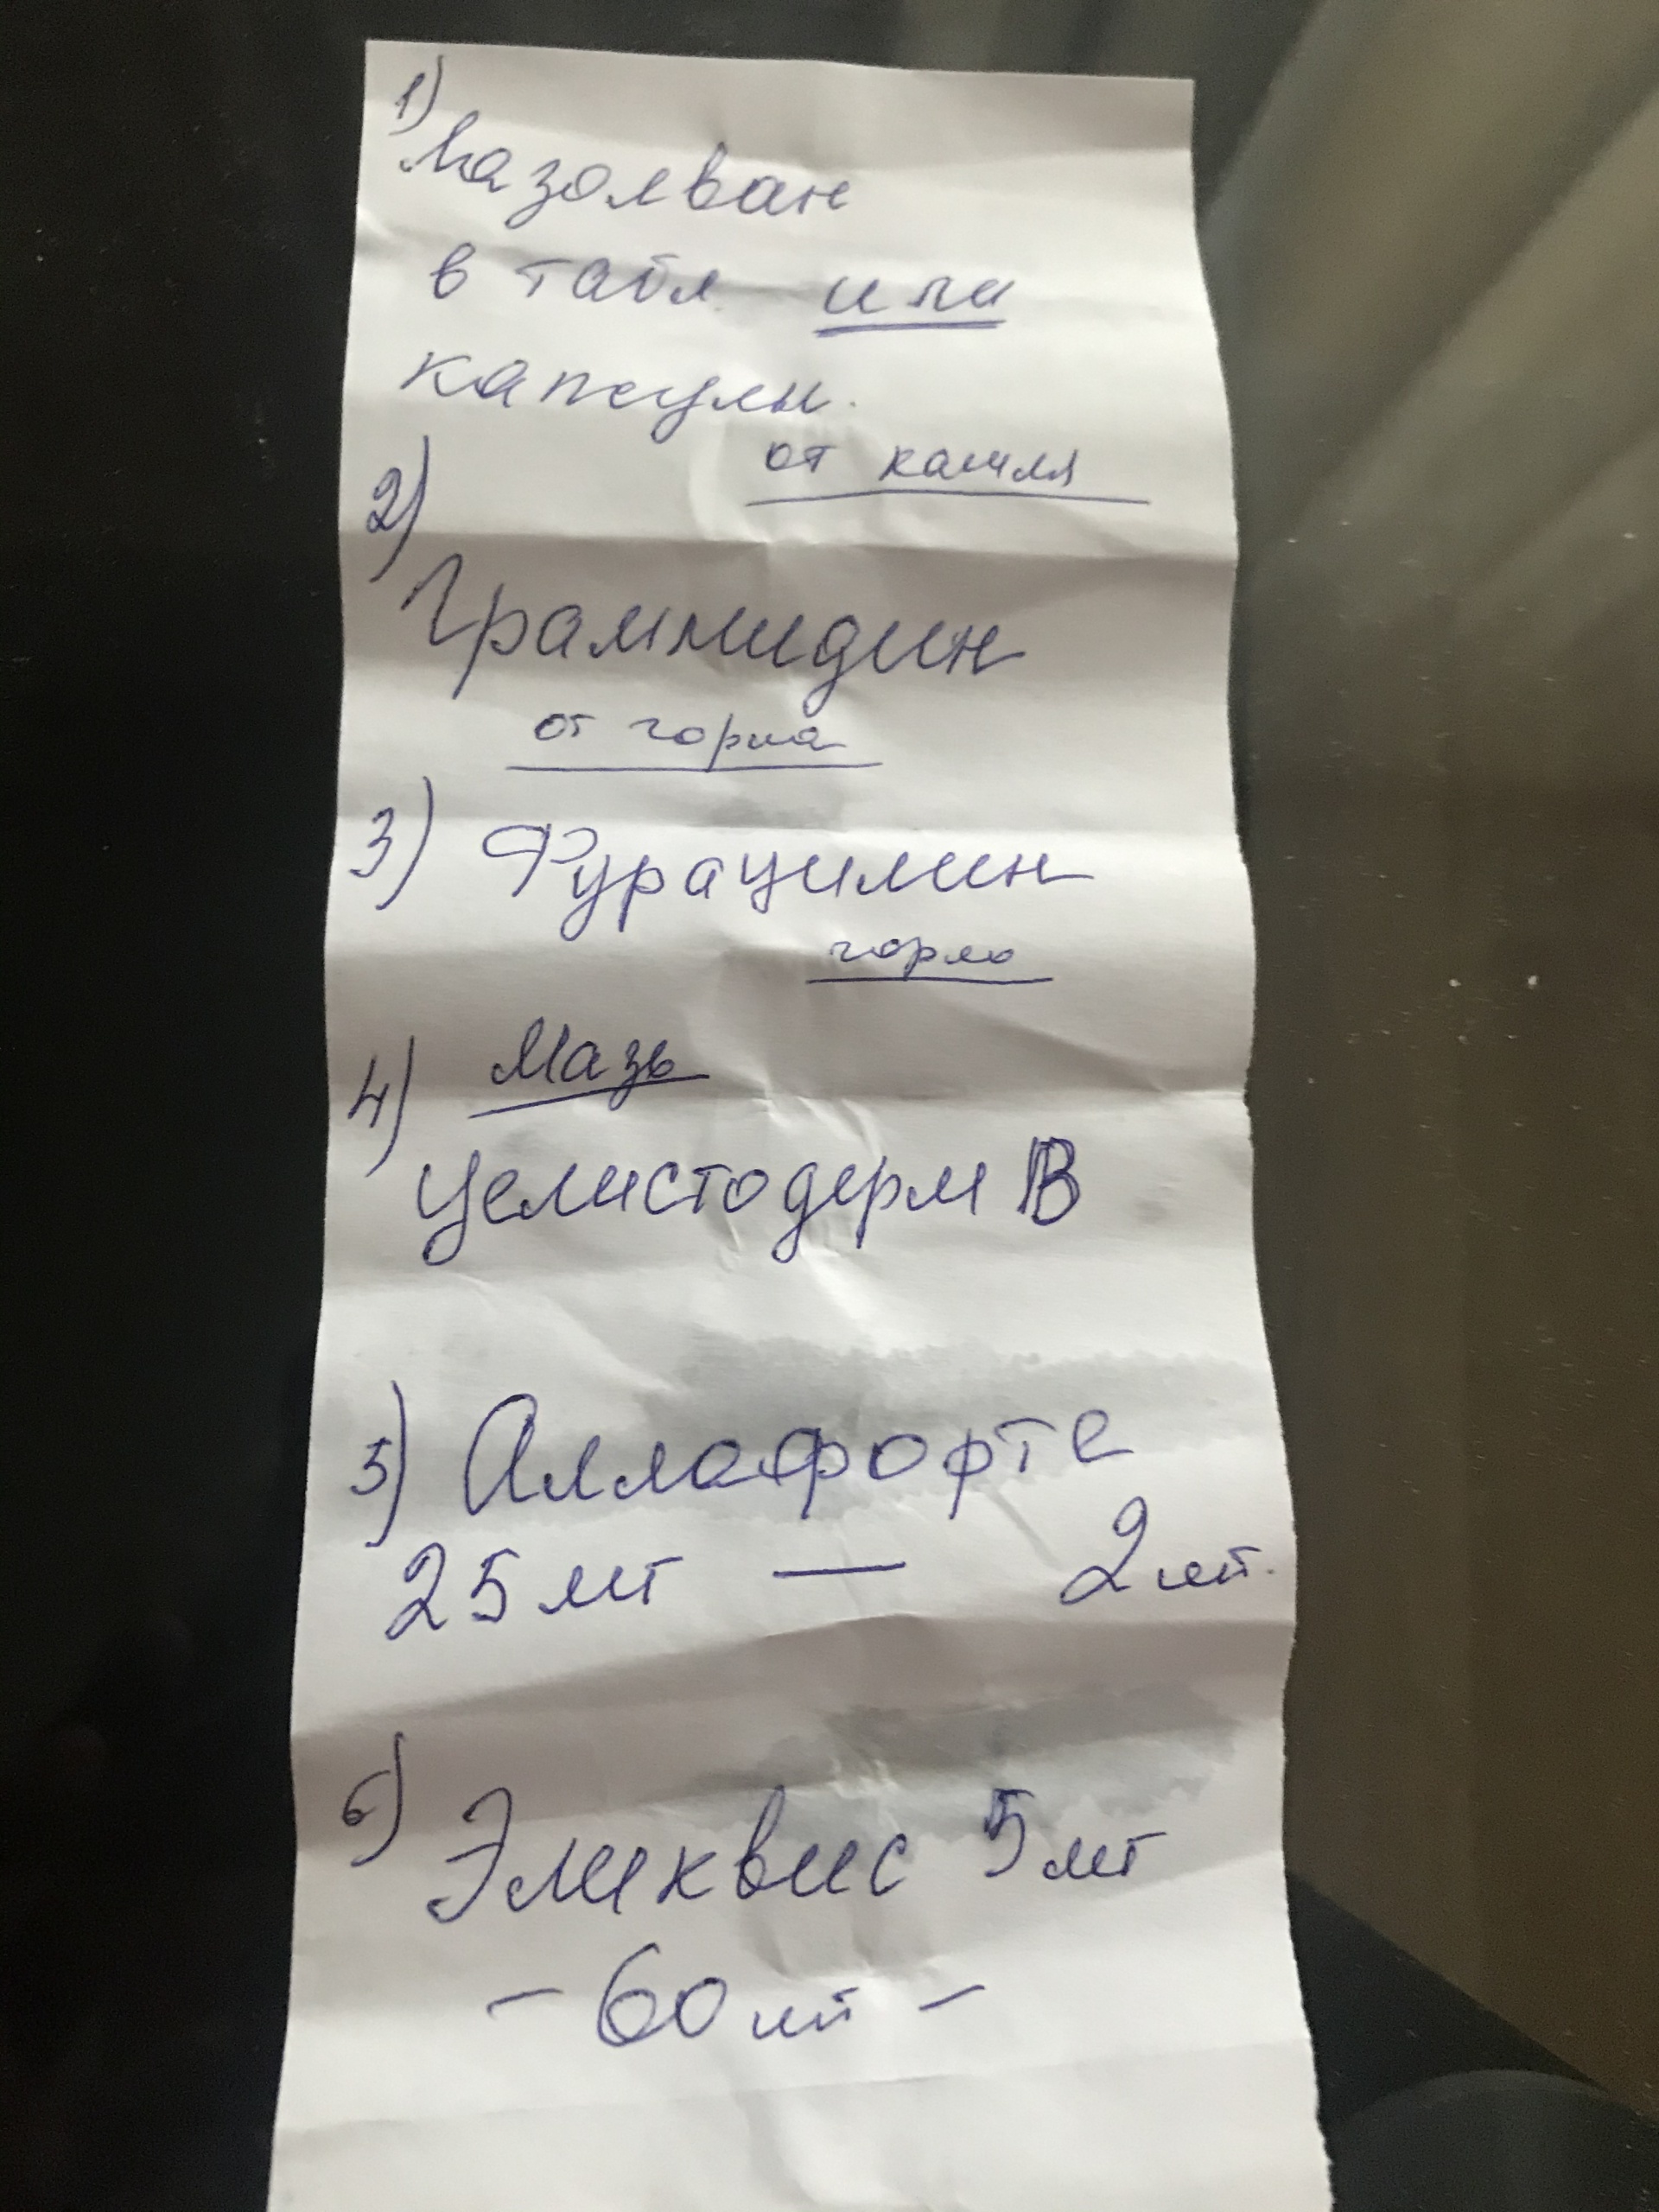 1)
Лазолван
в табл. или
капсулы.
от кашля
2)
Граммидин
от горла
3) Фурацилин
горло
4) Мазь
Целистодерм В
5) Аллафорте
25 мг — 2 шт.
6) Эликвис 5 мг
- 60 шт -